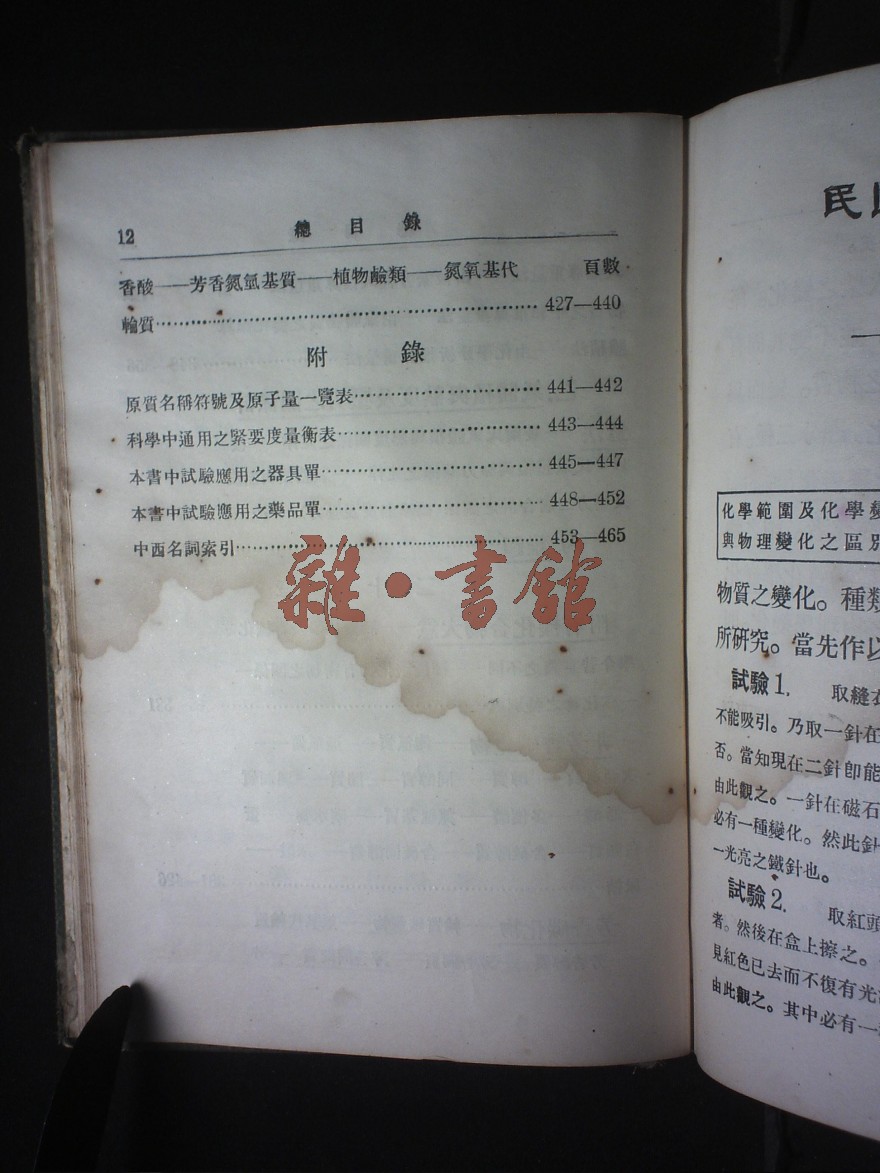 12 總目錄
香酸——芳香氮氫基質——植物鹼類——氮氧基代 頁數
輪質 427—440
附錄
原質名稱符號及原子量一覽表 441—442
科學中通用之緊要度量衡表 443—444
本書中試驗應用之器具單 445—447
本書中試驗應用之藥品單 448—452
中西名詞索引 453—465
雜·書館
民
化學範圍及化學變
與物理變化之區別
物質之變化。種類
所研究。當先作以
試驗1. 取縫衣
不能吸引。乃取一針在
否。當知現在二針即能
由此觀之。一針在磁石
必有一種變化。然此針
一光亮之鐵針也。
試驗2. 取紅頭
者。然後在盒上擦之。
見紅色已去而不復有光
由此觀之。其中必有一